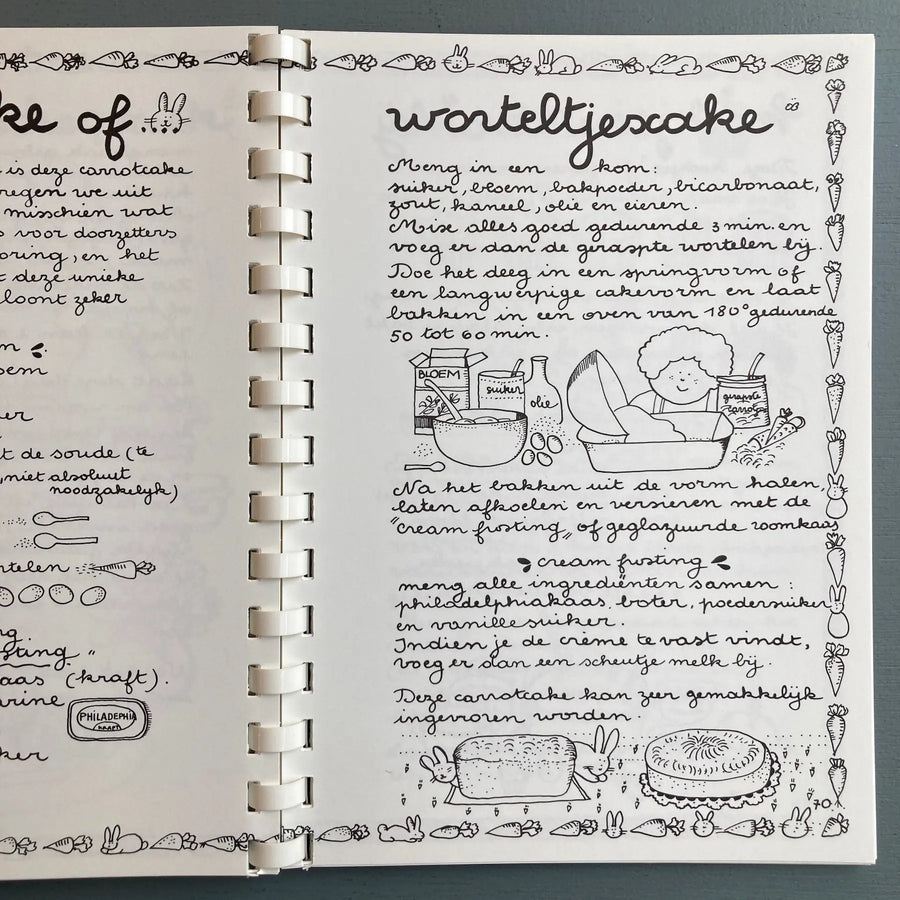 ke of
is deze carrotcake
regen we uit
misschien wat
s voor doorzetters
oring, en het
t deze unieke
loont zeker
n
oem
er
t de soude (te
, niet absoluut
noodzakelijk)
rtelen
ng.
sting"
aas (kraft).
arine
PHILADEPHIA
kaart
ker
worteltjescake
Meng in een kom:
suiker, bloem, bakpoeder, bicarbonaat,
zout, kaneel, olie en eieren.
Mixe alles goed gedurende 3 min. en
voeg er dan de geraspte wortelen bij.
Doe het deeg in een springvorm of
een langwerpige cakevorm en laat
bakken in een oven van 180° gedurende
50 tot 60 min.
BLOEM
suiker
olie
geraspte
carrotjes
Na het bakken uit de vorm halen,
laten afkoelen en versieren met de
"cream frosting" of geglazuurde roomkaas
cream frosting
meng alle ingrediënten samen:
philadelphiakaas, boter, poedersuiker
en vanillesuiker.
Indien je de crème te vast vindt,
voeg er dan een scheutje melk bij.
Deze carrotcake kan zeer gemakkelijk
ingevroren worden.
70